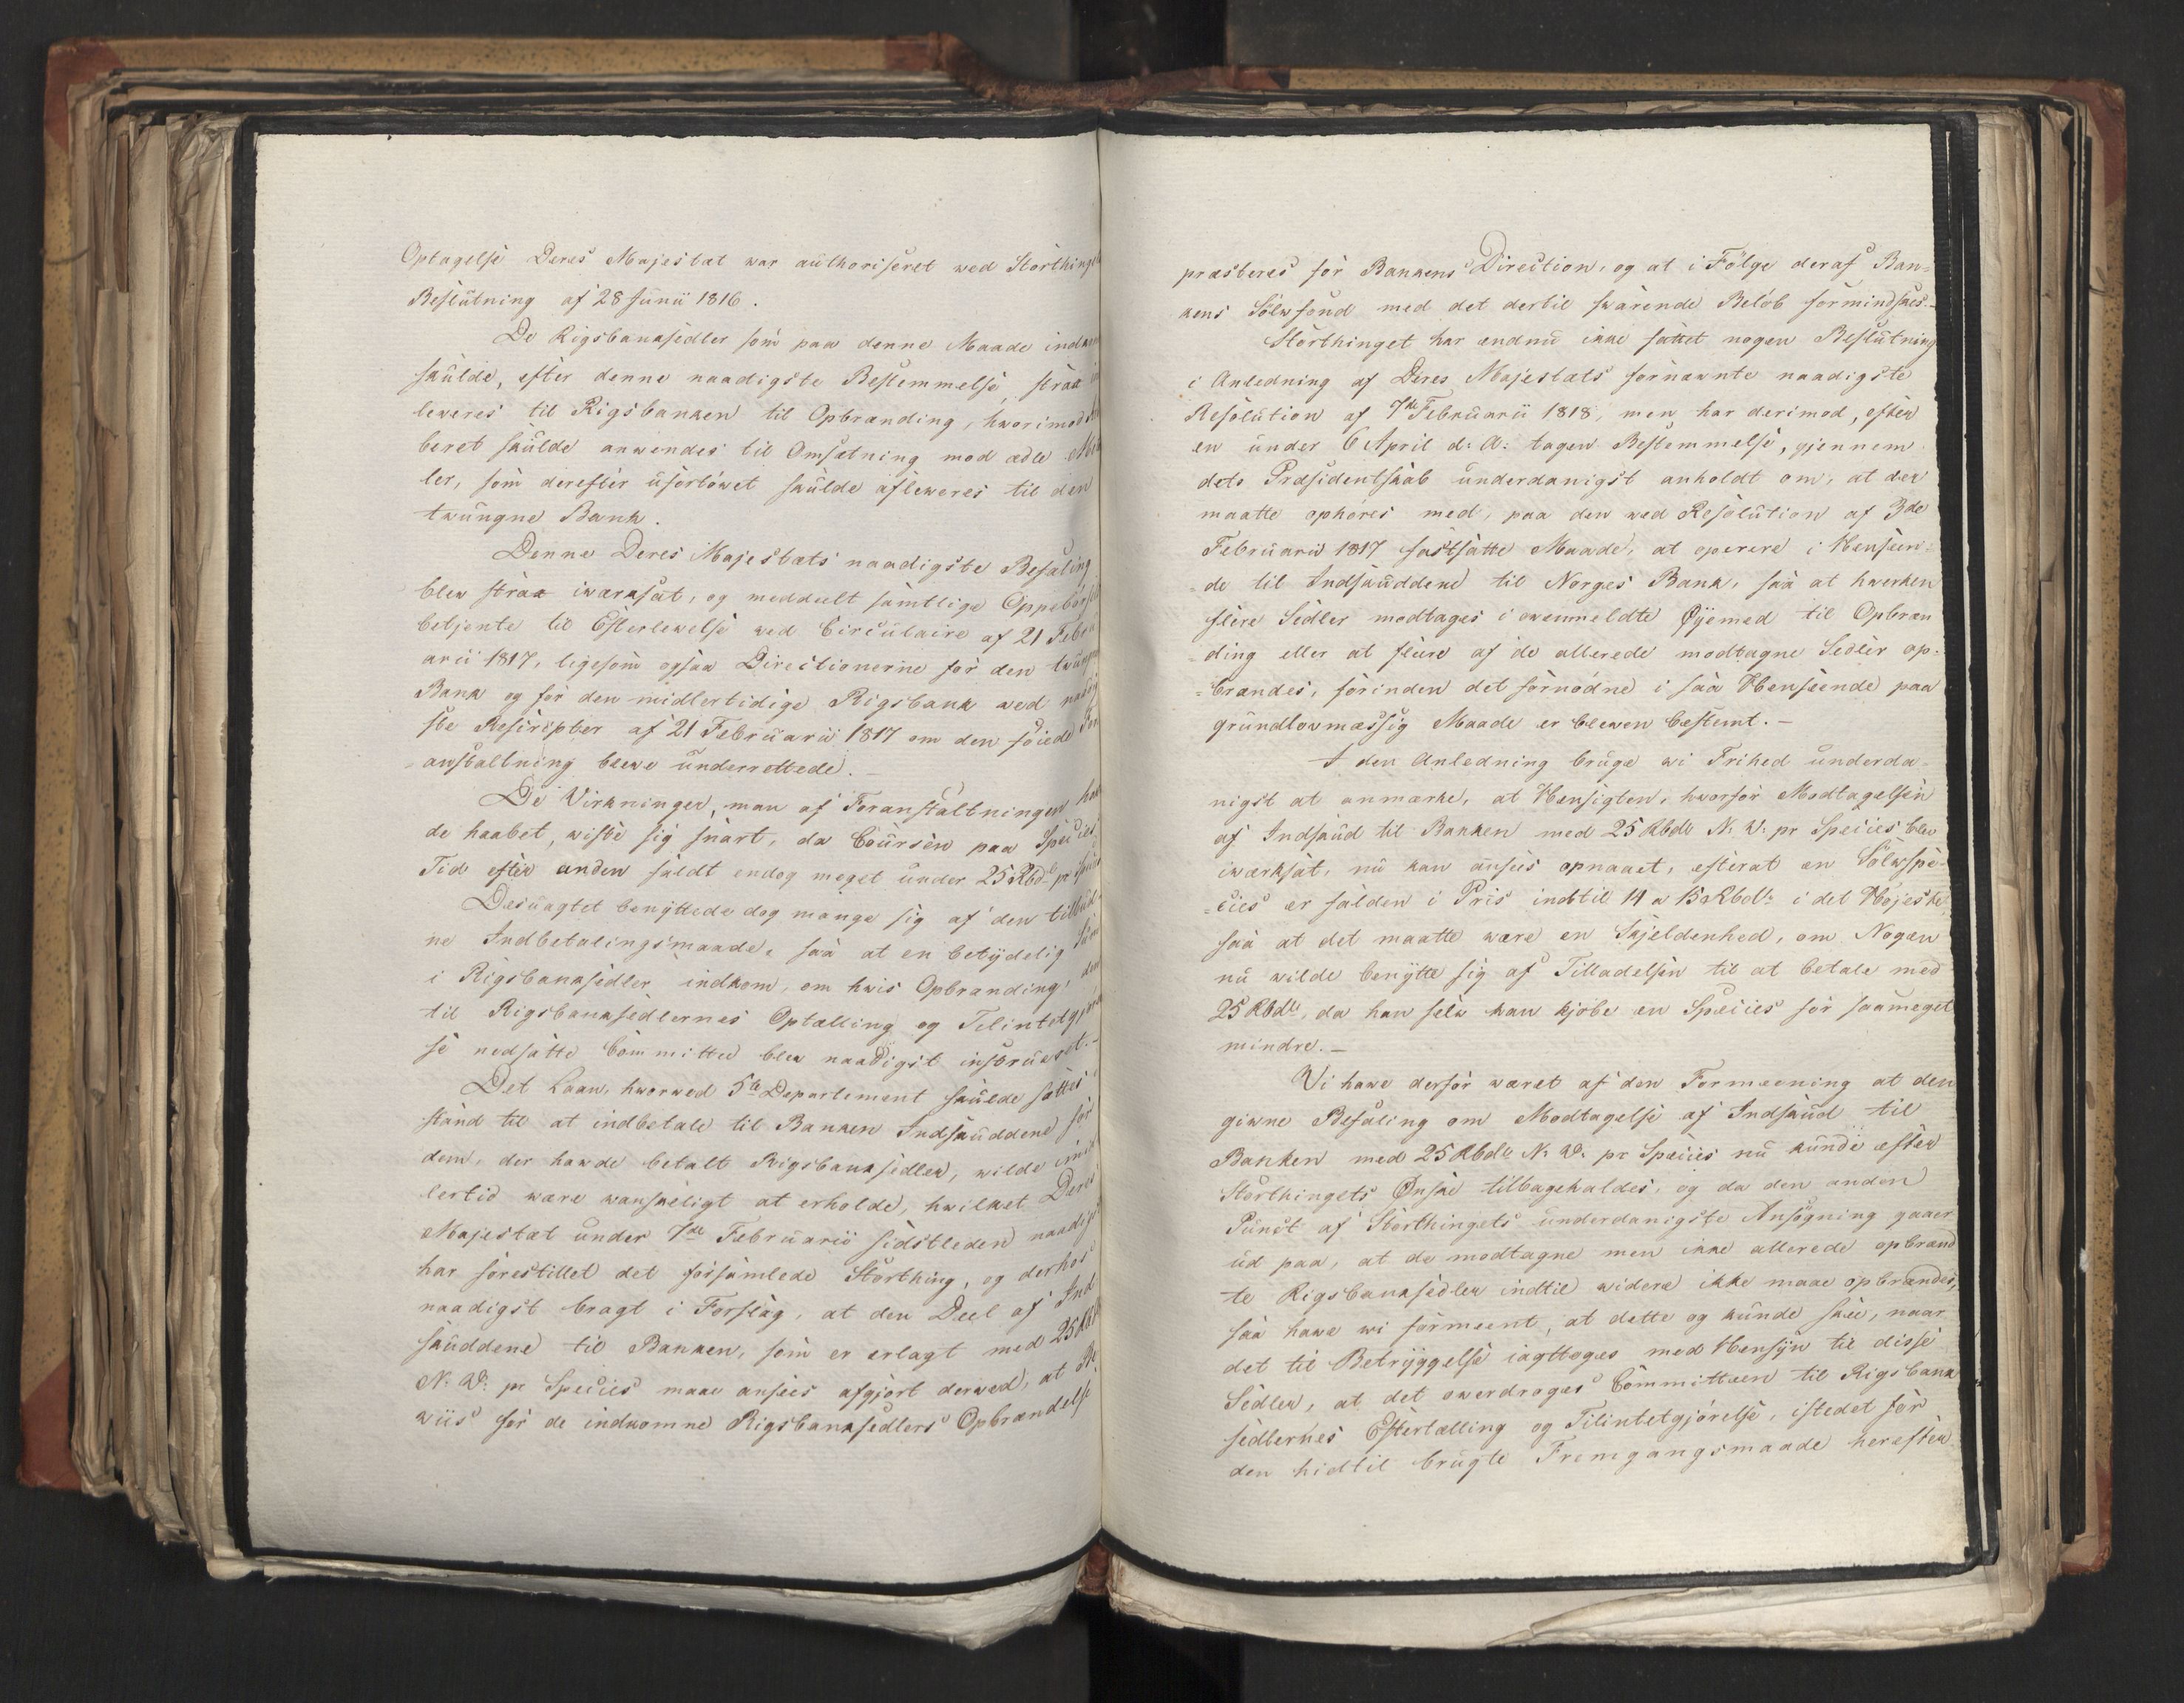 Optagelse Deres Majestæt var authoriseret ved Storthingets
Beslutning af 28 Junii 1816.
De Rigsbanksedler som paa denne Maade indkom
skulde, efter denne naadigste Bestemmelse, strax
leveres til Rigsbanken til Opbrænding, hvorimod
beret skulde anvendes til Omsætning mod ædle
ler, som derefter ufortøvet skulde afleveres til den
tvungne Bank.
Denne Deres Majestæts naadigste Befaling
blev strax iværksat, og meddeelt samtlige Oppebørsels
betjente til Efterlevelse ved Circulaire af 21 Febru
arii 1817, ligesom ogsaa Directionerne for den tvungne
Bank og for den midlertidige Rigsbank ved naadig
ste Rescripter af 21 Februarii 1817 om den föiede For
anstaltning bleve underrettede.-
De Virkninger, man af Foranstaltningen hav
de haabet, viste sig snart, da Coursen paa Species
Tid efter anden faldt endog meget under 25 Rbd. pr Species
Desuagtet benyttede dog mange sig af den tilbud-
ne Indbetalingsmaade, saa at en betydelig Sum
i Rigsbanksedler indkom, om hvis Opbrænding, den
til Rigsbanksedlernes Optælling og Tilintetgjörel
se nedsatte Committee blev naadigst instrueret.-
Det Laan, hvorved 5te Departement skulde sættes
stand til at indbetale til Banken Indskuddene for
dem, der havde betalt Rigsbanksedler, vilde imid
lertid være vanskeligt at erholde, hvilket Deres
Majestæt under 7de Februarii sidstleden naadigst
har forestillet det forsamlede Storthing, og derhos
naadigst bragt i Forslag, at den Deel af Ind
skuddene til Banken, som er erlagt med 25 Rbdlr
N: V: pr Species maae ansees afgjort derved, at Be
viis for de indkomne Rigsbanksedlers Opbrændelse
præsteres for Bankens Direction, og at i Fölge deraf Ban-
kens Sölvfond med det dertil svarende Belöb formindskes.-
Storthinget har endnu ikke fattet nogen Beslutning
i Anledning af Deres Majestæts fornævnte naadigste
Resolution af 7de Februarii 1818, men har derimod, efter
en under 6 April d: A: tagen Bestemmelse, gjennem
dets Præsidentskab underdanigst anholdt om, at der
maatte ophores med, paa den ved Resolution af 3de
Februarii 1817 fastsatte Maade, at operere i Henseen-
de til Indskuddene til Norges Bank, saa at hverken
flere Sedler modtages i ovenmeldte Öyemed til Opbræn
ding eller at flere af de allerede modtagne Sedler op-
brændes, forinden det fornödne i saa Henseende paa
grundlovmæssig Maade er bleven bestemt.-
I den Anledning bruge vi Frihed underda-
nigst at anmærke, at Hensigten, hvorfor Modtagelsen
af Indskud til Banken med 25 Rbdlr N: V: pr Species blev
iværksat, nu kan ansees opnaaet, efterat en Sölvspe-
cies er falden i Pris indtil 14 a 15 Rbdlr i det Höjeste,
saa at det maatte være en Sjeldenhed, om Nogen
nu vilde benytte sig af Tilladelsen til at betale med
25 Rbdlr, da han selv kan kjöbe en Species for saameget
mindre.-
Vi have derfor været af den Formeening at den
givne Befaling om Modtagelse af Indskud til
Banken med 25 Rbdlr N. V. pr Species nu kunde efter
Storthingets Önske tilbageholdes, og da den anden
Punct af Storthingets underdanigste Ansögning gaaer
ud paa, at de modtagne men ikke allerede opbrænd
te Rigsbanksedler indtil videre ikke maae opbrændes,
saa have vi formeent, at dette og kunde skee, naar
det til Betryggelse iagttoges med Hensyn til disse
Sedler, at det overdroges Committeen til Rigsbank
sedlernes Eftertælling og Tilintetgjörelse, istedet for
den hidtil brugte Fremgangsmaade herefter